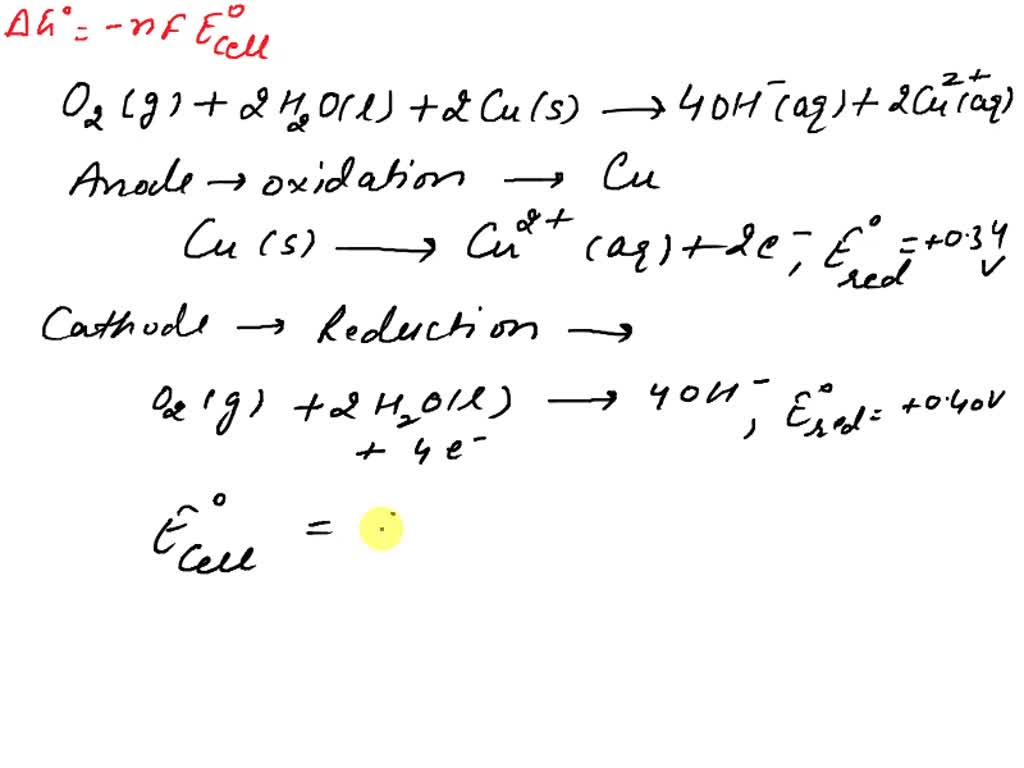 ΔG° = -nFE°cell
O₂(g) + 2H₂O(l) + 2Cu(s) → 4OH⁻(aq) + 2Cu²⁺(aq)
Anode → oxidation → Cu
Cu(s) → Cu²⁺(aq) + 2e⁻, E°red = +0.34 V
Cathode → Reduction →
O₂(g) + 2H₂O(l) + 4e⁻ → 4OH⁻, E°red = +0.40V
E°cell =